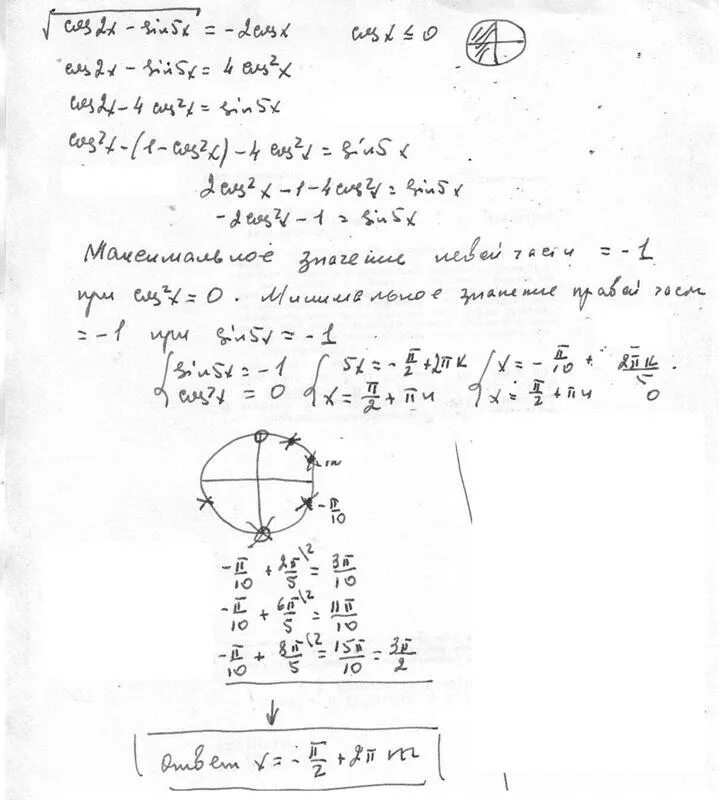 √(cos2x - sin5x) = -2cosx   cosx ≤ 0
cos2x - sin5x = 4cos²x
cos2x - 4cos²x = sin5x
cos²x - (1 - cos²x) - 4cos²x = sin5x
2cos²x - 1 - 4cos²x = sin5x
-2cos²x - 1 = sin5x
Максимальное значение левой части = -1
при cos²x = 0. Минимальное значение правой части
= -1 при sin5x = -1
{ sin5x = -1   { 5x = -π/2 + 2πk   { x = -π/10 + 2πk/5 .
cos²x = 0   x = π/2 + πn   x = π/2 + πn   0
-π/10
-π/10 + 2π/5 \2 = 3π/10
-π/10 + 6π/5 \2 = 11π/10
-π/10 + 8π/5 \2 = 15π/10 = 3π/2
ответ x = -π/2 + 2πm